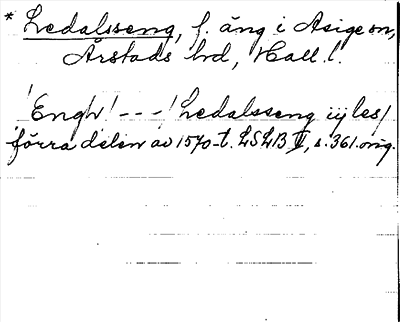 * Ledalsseng, f. äng i Asige sn,
Årstads hd, Hall. l.
'Engh' - - -/ Ledalsseng iij les/
förra delen av 1570-t. LSLB V, s. 361. orig.